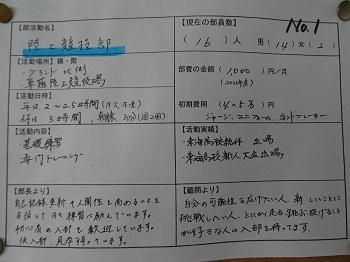 No.1
【部活動名】
陸上競技部
【現在の部員数】
(16)人 男(14)女(2)
【活動場所】棟・階
・グランド 北側
・草薙陸上競技場
部費の金額 1,000 円/月
【活動日時】
平日 2~2.5時間(月火木金)
休日 3時間、朝練 30分(週2回)
初期費用 4から5万
ジャージ、ユニフォーム、ネットブレーカー
【活動内容】
・基礎練習
・専門トレーニング
【活動実績】
・東海高校総体 出場
・東海高校新人大会出場
【部長より】
自己記録更新や人間性を高めることを
目標として日々練習に励んでいます。
初心者の入部も歓迎しています。
仮入部、見学待っています。
【顧問より】
自分の可能性を広げたい人、新しいことに
挑戦したい人、とにかく走る、跳ぶ、投げること
が好きな人の入部を待ってます。